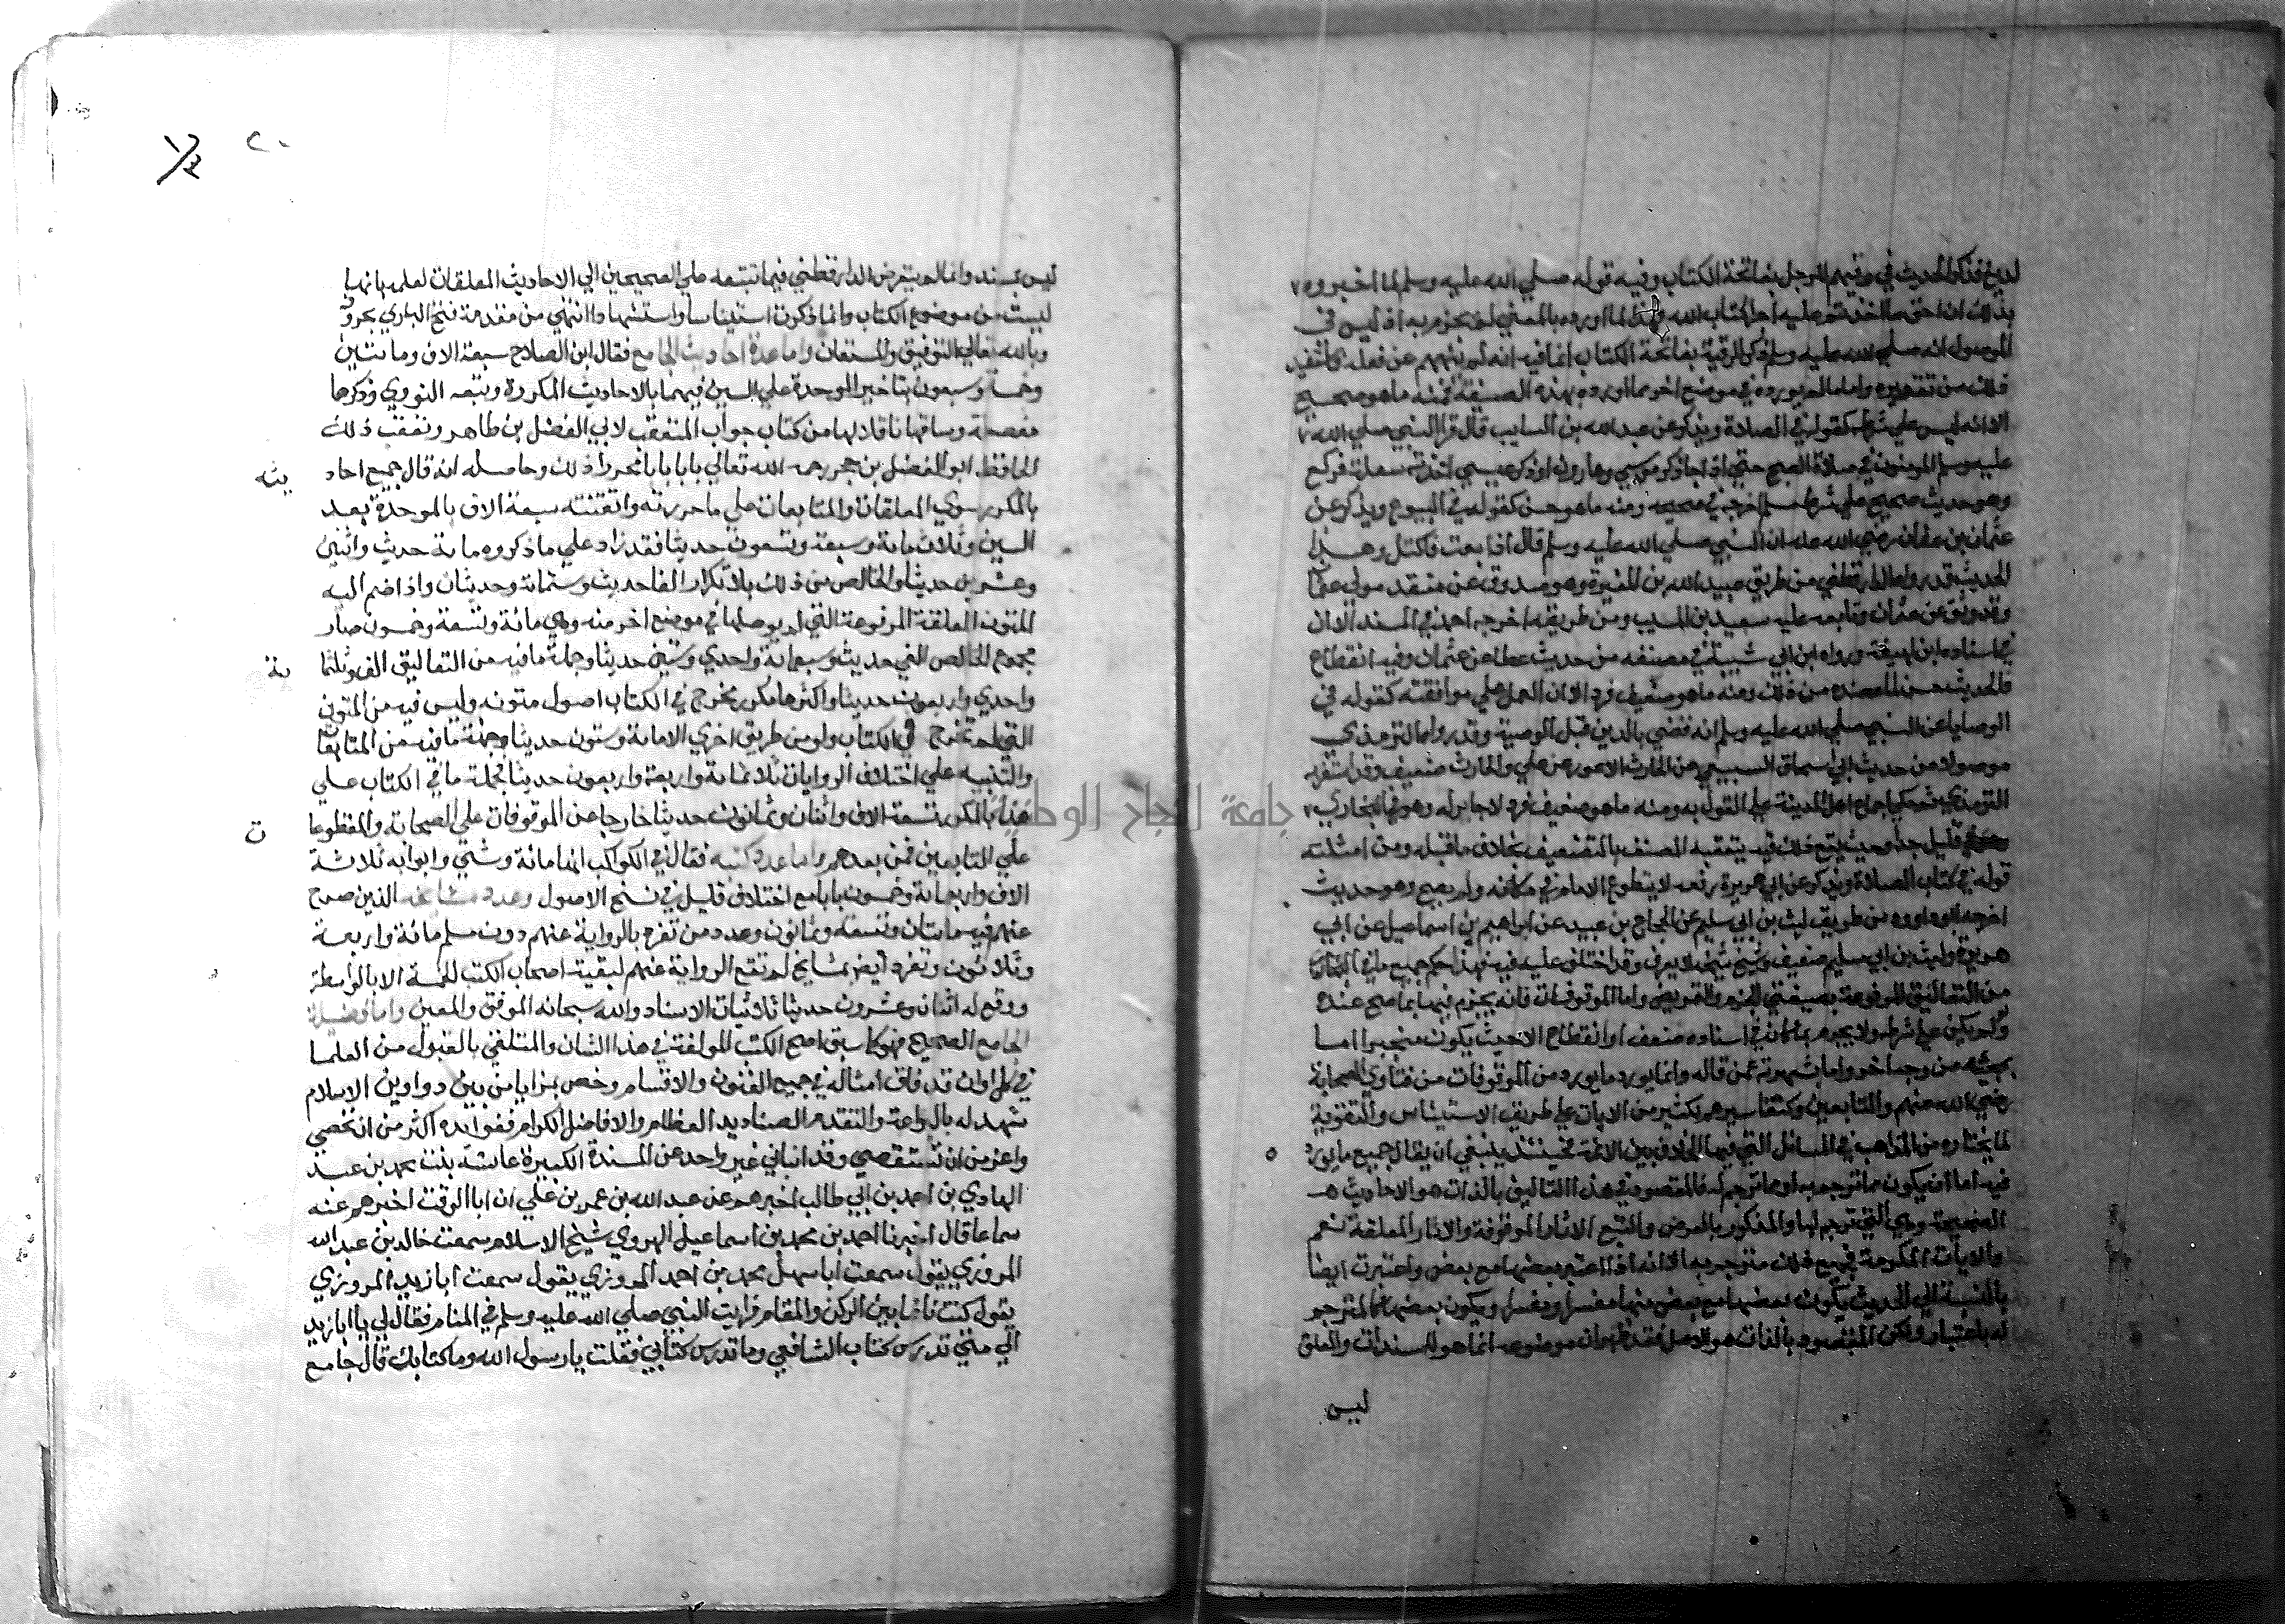 لديغ فذكر الحديث في رقيتهم للرجل بفاتحة الكتاب وفيه قوله صلي الله عليه وسلم لما اخبروه
بذلك ان احق ما اخذتم عليه اجرا كتاب الله فهذا لما اورده بالمعني لم يجزم به اذ ليس في
الموصول انه صلي الله عليه وسلم ذكر الرقية بفاتحة الكتاب انما فيه انه لم ينههم عن فعلهم فاستفيد
ذلك من تقريره واما ما لم يورده في موضع اخر مما اورده بهذه الصيغة فمنه ما هو صحيح
الا انه ليس علي شرطه كقوله في الصلاة ويذكر عن عبد الله بن السايب قال قرا النبي صلي الله
عليه وسلم المومنون في صلاة الصبح حتي اذا جا ذكر موسي وهارون او ذكر عيسي اخذته سعلة فركع
وهو حديث صحيح علي شرط مسلم اخرجه في صحيحه ومنه ما هو حسن كقوله في البيوع ويذكر عن
عثمان بن عفان رضي الله عنه ان النبي صلي الله عليه وسلم قال اذا بعت فاكتل وهذا
الحديث قد رواه الدارقطني من طريق عبيد الله بن المغيرة وهو صدوق عن منقد مولي عثما
وقد وثق عن عثمان وتابعه عليه سعيد بن المسيب ومن طريقه اخرجه احمد في المسند الا ان
في اسناده ابن لهيعة ورواه ابن ابي شيبة في مصنفه من حديث عطا عن عثمان وفيه انقطاع
فالحديث حسن لما عضده من ذلك ومنه ما هو ضعيف فرد الا ان العمل علي موافقته كقوله في
الوصايا عن النبي صلي الله عليه وسلم انه قضي بالدين قبل الوصية وقد رواه الترمذي
موصولا من حديث ابي اسحاق السبيعي عن الحارث الاعور عن علي والحارث ضعيف وقد استغربه
الترمذي ثم حكي اجماع اهل المدينة علي القول به ومنه ما هو ضعيف فرد لا جابر له وهو في البخاري
قليل جدا وحيث يقع ذلك فيه يتعقبه المصنف بالتضعيف بخلاف ما قبله ومن امثلته
قوله في كتاب الصلاة ويذكر عن ابي هريرة رفعه لا يتطوع الامام في مكانه ولم يصح وهو حديث
اخرجه ابو داود من طريق ليث بن ابي سليم عن الحجاج بن عبيد عن ابراهيم بن اسماعيل عن ابي
هريرة وليث بن ابي سليم ضعيف وشيخ شيخه لا يعرف وقد اختلف عليه فيه فهذا حكم جميع ما في الكتاب
من التعاليق المرفوعة بصيغتي الجزم والتمريض واما الموقوفات فانه يجزم فيها بما صح عنده
ولو لم يكن علي شرطه ولا يجزم بما كان في اسناده ضعف او انقطاع الا حيث يكون منجبرا اما
بمجيئه من وجه اخر واما بشهرته عمن قاله وانما يورد ما يورد من الموقوفات من فتاوي الصحابة
رضي الله عنهم والتابعين وكتفاسيرهم لكثير من الايات علي طريق الاستيناس والتقوية
لما يختاره من المذاهب في المسائل التي فيها الخلاف بين الائمة فحينئذ ينبغي ان يقال جميع ما يورد
فيه اما ان يكون مما ترجم به او مما ترجم له فالمقصود في هذا التاليف بالذات هو الاحاديث
الصحيحة وهي التي ترجم لها والمذكور بالعرض والتبع الاثار الموقوفة والاثار المعلقة نعم
والايات المكرمة فجميع ذلك مترجم به الا انه اذا اعتبر بعضها مع بعض واعتبرت ايضا
بالنسبة الي الحديث يكون بعضها مع بعض منها مفسرا ومفسرا ويكون بعضها كالمترجم
له باعتبار ولكن المقصود بالذات هو الاصل فقد ظهر ان موضوعه انما هو للمسندات والمعلق
ليس
ليس بمسند ولذا لم يتعرض الدارقطني فيما تتبعه علي الصحيحين الي الاحاديث المعلقات لعلمه بانها
ليست من موضوع الكتاب وانما ذكرت استيناسا واستشهادا انتهي من مقدمة فتح الباري بحروفه
وبالله تعالي التوفيق والمستعان واما عدة احاديث الجامع فقال ابن الصلاح سبعة الاف ومائتين
وخمسة وسبعون بتاخير الموحدة علي السين فيهما بالاحاديث المكررة وتبعه النووي وذكرها
مفصلة وساقها ناقلا لها من كتاب جواب المتعقب لابي الفضل بن طاهر وتعقب ذلك
الحافظ ابو الفضل بن حجر رحمه الله تعالي بابا بابا محررا ذلك وحاصله انه قال جميع احاد يثه
بالمكرر سوي المعلقات والمتابعات علي ما حررته واتقنته سبعة الاف بالموحدة بعد
السين وثلاث ماية وسبعة وتسعون حديثا فقد زاد علي ما ذكروه ماية حديث واثنين
وعشرين حديثا والخالص من ذلك بلا تكرار الفا حديث وستماية وحديثان واذا ضم اليه
المتون المعلقة المرفوعة التي لم يوصلها في موضع اخر منه وهي مائة وتسعة وخمسون صار
مجموع الخالص الفي حديث وسبعماية واحدي وستين حديثا وجملة ما فيه من التعاليق الف وثلثما ية
واحدي واربعون حديثا واكثرها مكرر مخرج في الكتاب اصول متونه وليس فيه من المتون
التي لم تخرج في الكتاب ولو من طريق اخري الا ماية وستون حديثا وجملة ما فيه من المتابعا
والتنبيه علي اختلاف الروايات ثلاثماية واربعة واربعون حديثا فجملة ما في الكتاب علي
هذا بالمكرر تسعة الاف واثنان وثمانون حديثا خارجا عن الموقوفات علي الصحابة والمقطوعا ت
علي التابعين فمن بعدهم واما عدد كتبه فقال في الكواكب انها مائة وشي وابوابه ثلاثة
الاف واربعماية وخمسون بابا مع اختلاف قليل في نسخ الاصول وعدد مشايخه الذين صرح
عنهم فيه مايتان وتسعة وثمانون وعدد من تفرد بالرواية عنهم دون مسلم مائة واربعة
وثلاثون وتفرد ايضا بمشايخ لم تقع الرواية عنهم لبقية اصحاب الكتب الخمسة الا بالواسطة
ووقع له اثنان وعشرون حديثا ثلاثيات الاسناد والله سبحانه الموفق والمعين واما فضيلة
الجامع الصحيح فهو كما سبق اصح الكتب المولفة في هذا الشان والمتلقي بالقبول من العلما
في كل اوان قد فاق امثاله في جميع الفنون والاقسام وخص بمزايا من بين دواوين الاسلام
شهد له بالبراعة والتقدم الصناديد العظام والافاضل الكرام ففوائده اكثر من ان تحصي
واعز من ان تستقصي وقد انباني غير واحد عن المسندة الكبيرة عايشة بنت محمد بن عبد
الهادي بن احمد بن ابي طالب اخبرهم عن عبد الله بن عمر بن علي ان ابا الوقت اخبرهم عنه
سماعا قال اخبرنا احمد بن محمد بن اسماعيل الهروي شيخ الاسلام سمعت خالد بن عبد الله
المروزي يقول سمعت ابا سهل محمد بن احمد المروزي يقول سمعت ابا زيد المروزي
يقول كنت نائما بين الركن والمقام فرايت النبي صلي الله عليه وسلم في المنام فقال لي يا ابا زيد
الي متي تدرس كتاب الشافعي وما تدرس كتابي فقلت يا رسول الله وما كتابك قال جامع
جامعة النجاح الوطنية